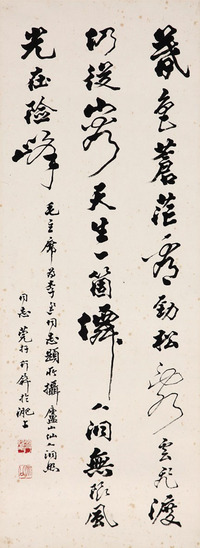 暮色蒼茫看勁松亂雲飛渡
仍從容天生一箇僊人洞無限風
光在險峰
毛主席為李進同志題所攝廬山仙人洞照
同志